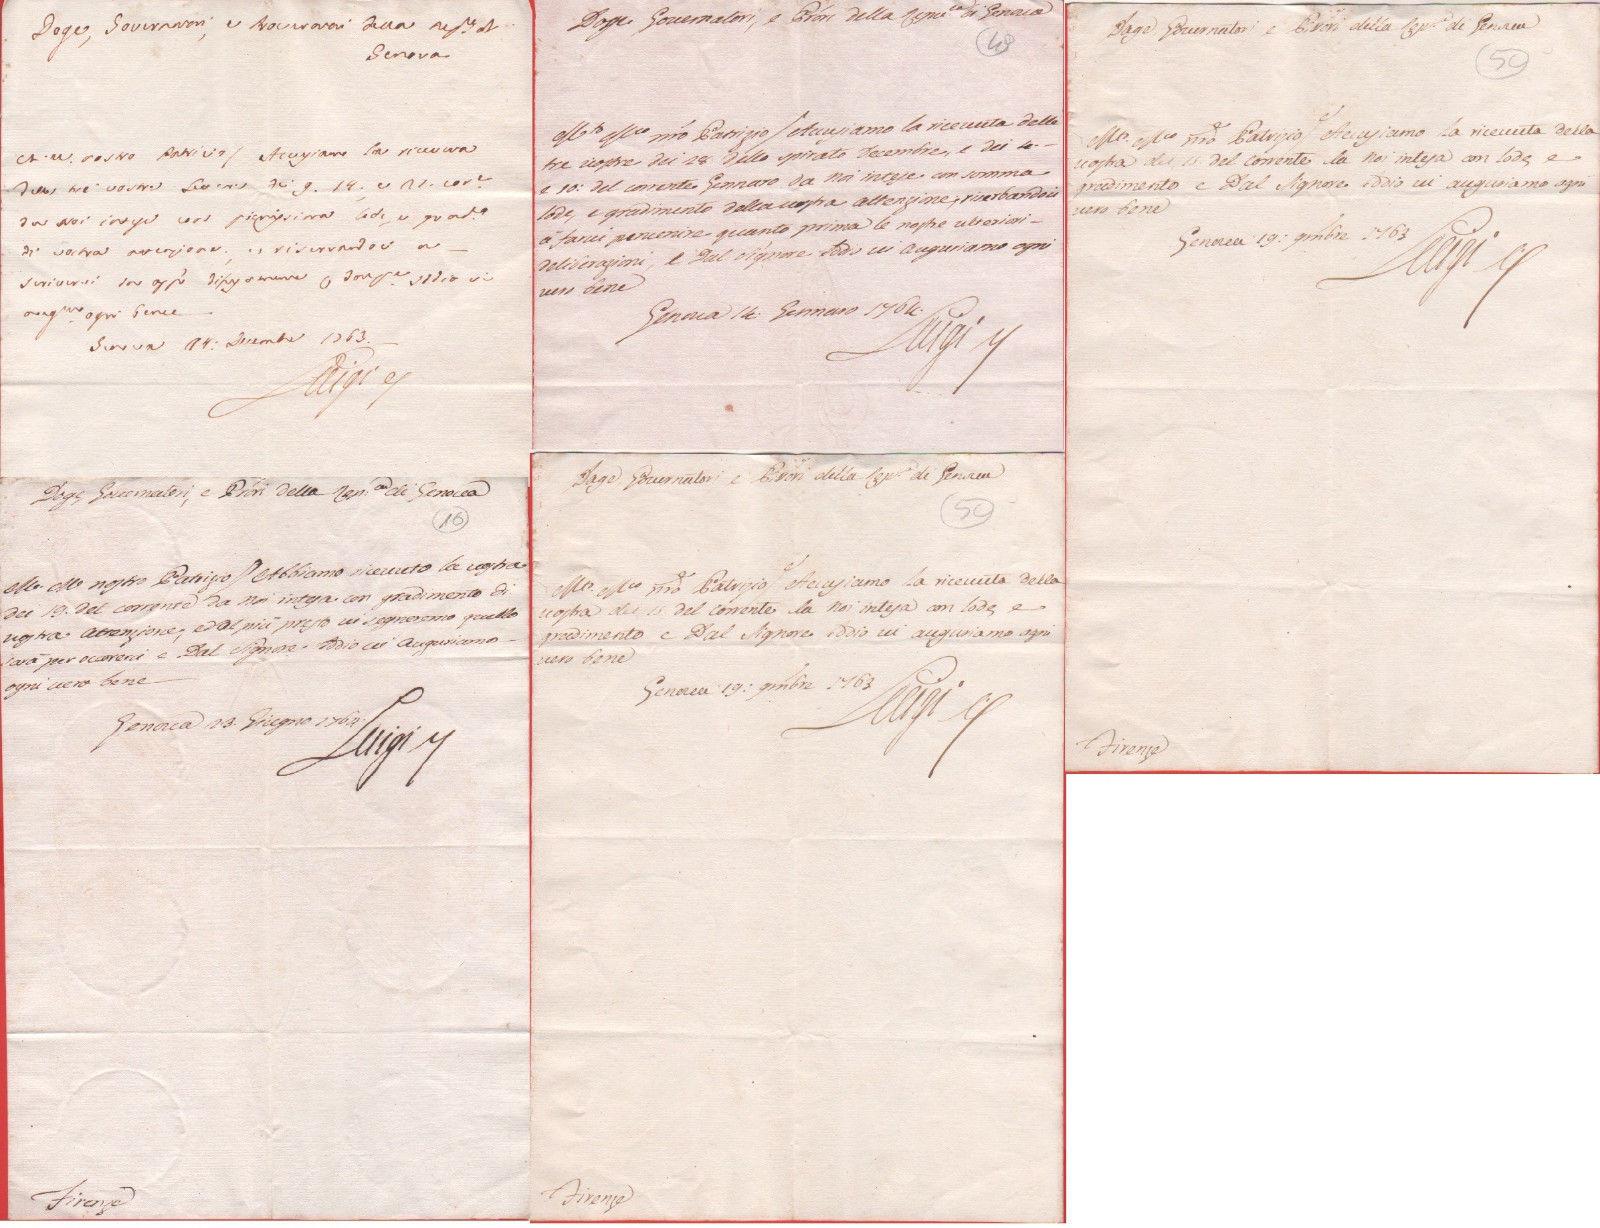 Doge, Governatori, e Procuratori della Rep.ca di
Genova
nostro Patrizio / Accusiamo la ricevuta
delle tre vostre Lettere dei 9. 14. e 21. corr.e
da noi intese con lode, e
di vostra attenzione, e riservandoci a
scrivervi Iddio vi
ogni bene
Genova 24: Decembre 1763.
Luigi
Doge Governatori, e Prōri della Repu.ca di Genova
48
M.to M.co nrō Patrizio / Accusiamo la ricevuta delle
tre vostre dei 28 dello spirato Decembre, e dei 4-
e 10: del corrente Gennaro da noi intese con somma
lode, e gradimento della vostra attenzione, riserbandoci
à farvi pervenire quanto prima le nostre ulteriori-
deliberazioni, e Dal Signore Iddio vi auguriamo ogni
vero bene
Genova 14. Gennaro 1764.
Luigi
Doge Governatori e Prōri della Rep.ca di Genova
50
M.to M.co nrō Patrizio / Accusiamo la ricevuta della
vostra dei del corrente da noi intesa con lode, e
gradimento e Dal Signore Iddio vi auguriamo ogni
vero bene
Genova 19: 9mbre 1763
Luigi
Firenze
Doge, Governatori, e Prōri della Rep.ca di Genova
16
M.to M.co nostro Patrizio / Abbiamo ricevuto la vostra
dei 19. del corrente da noi intesa con gradimento di
vostra attenzione, ed al più presto vi segneremo quello
sarà per ocorerci e Dal Signore Iddio vi Auguriamo
ogni vero bene
Genova 23. Giugno 1764.
Luigi
Firenze
Doge Governatori e Prōri della Rep.ca di Genova
50
M.to M.co nrō Patrizio / Accusiamo la ricevuta della
vostra dei del corrente da noi intesa con lode, e
gradimento e Dal Signore Iddio vi auguriamo ogni
vero bene
Genova 19: 9mbre 1763
Luigi
Firenze